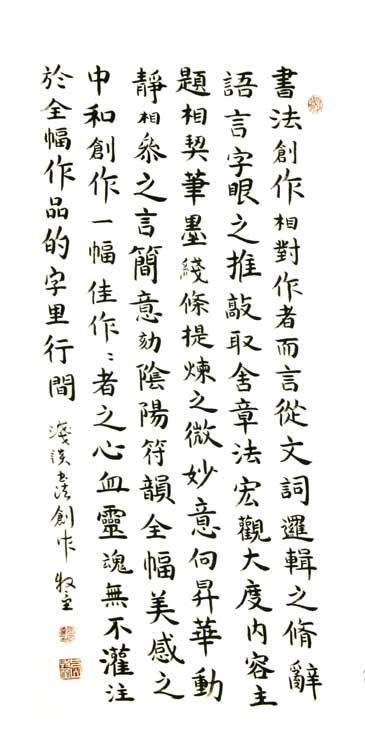 書法創作相對作者而言從文詞邏輯之脩辭
語言字眼之推敲取舍章法宏觀大度内容主
題相契筆墨綫條提煉之微妙意向昇華動
靜相叅之言簡意劾陰陽符韻全幅美感之
中和創作一幅佳作〻者之心血靈魂無不灌注
於全幅作品的字里行間
淺談书法創作